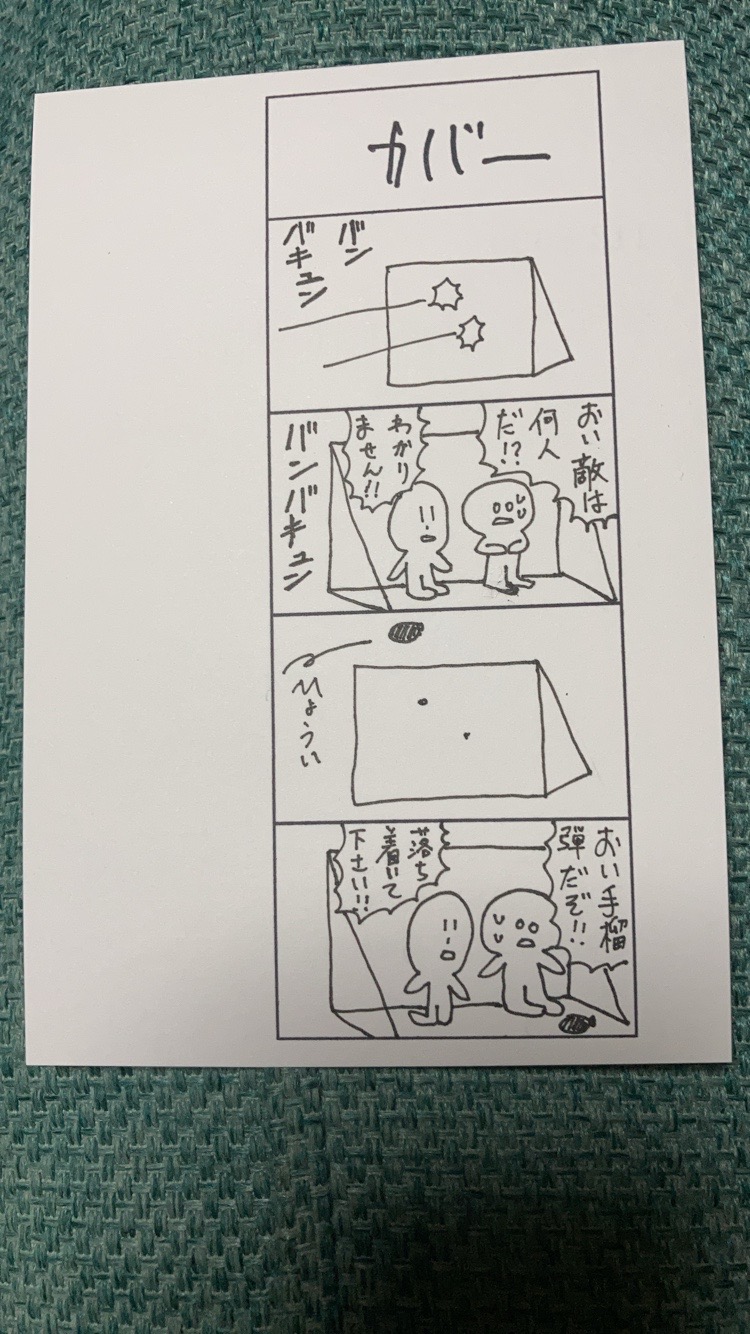 カバー
バン
バキュン
おい敵は
何人
だ!?
わかり
ません!!
バンバキュン
ひょうい
おい手榴
弾だぞ!!
落ち
着いて
下さい!!